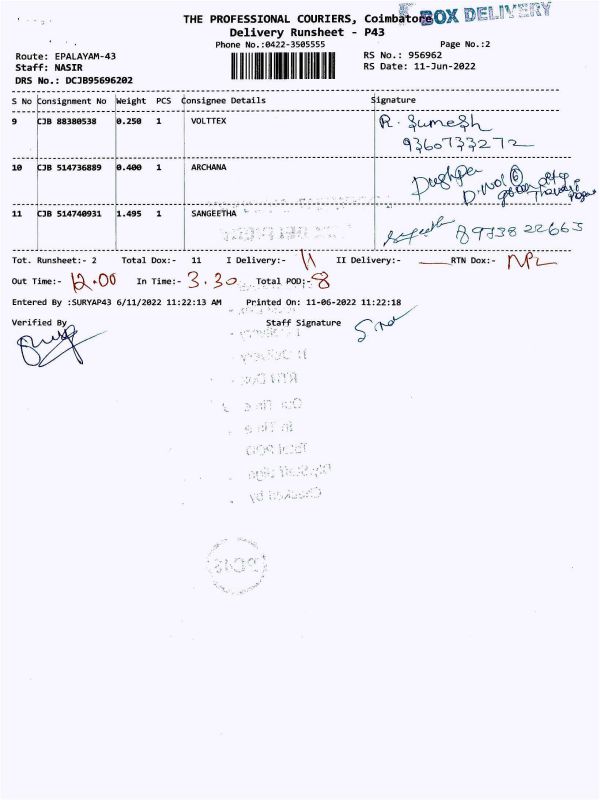 THE PROFESSIONAL COURIERS, Coimbatore BOX DELIVERY
Delivery Runsheet - P43
Phone No.:0422-3505555 Page No.:2
Route: EPALAYAM-43 RS No.: 956962
Staff: NASIR RS Date: 11-Jun-2022
DRS No.: DCJB95696202
S No Consignment No Weight PCS Consignee Details Signature
9 CJB 88380538 0.250 1 VOLTTEX R. Sumesh
9360733272
10 CJB 514736889 0.400 1 ARCHANA Pushpa
D.no 6
11 CJB 514740931 1.495 1 SANGEETHA Sangeetha 8973822663
Tot. Runsheet:- 2 Total Dox:- 11 I Delivery:- 11 II Delivery:- RTN Dox:- NPL
Out Time:- 12.00 In Time:- 3.30 Total POD:- 8
Entered By :SURYAP43 6/11/2022 11:22:13 AM Printed On: 11-06-2022 11:22:18
Verified By Staff Signature